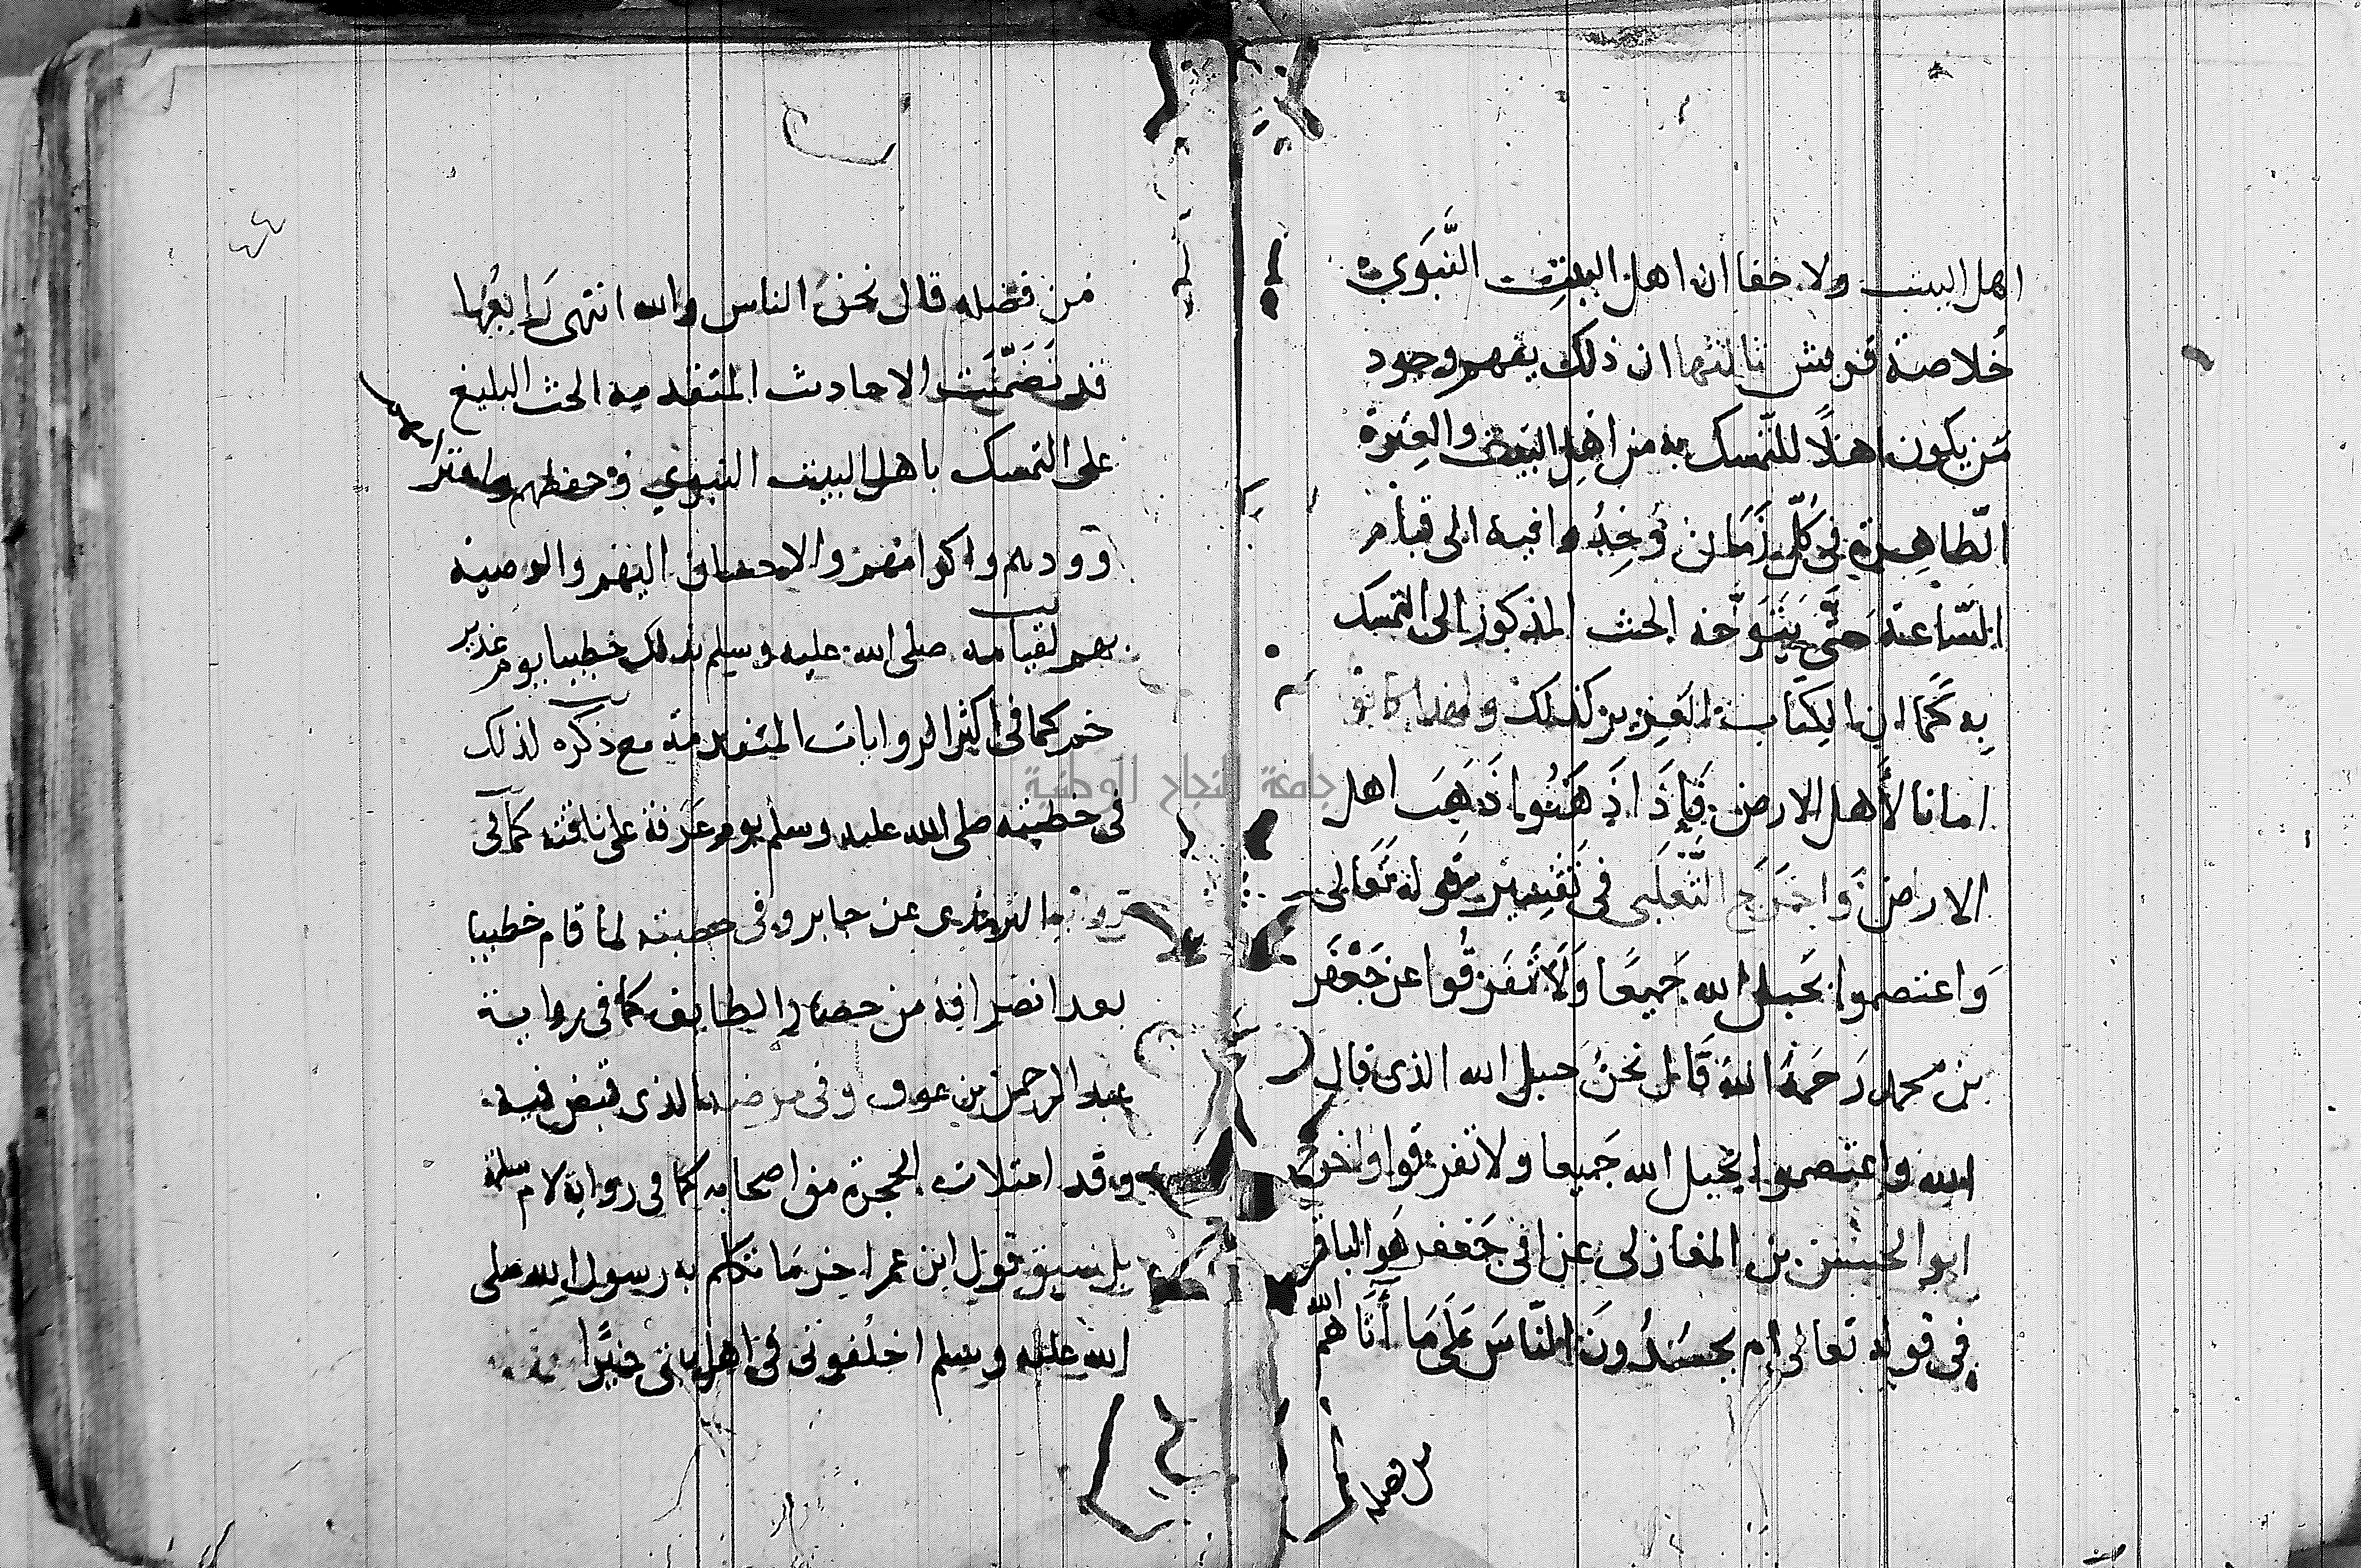 اهل البيت ولا خفا ان اهل البيت النَّبَوي
خُلاصة قريش ثالثها ان ذلك يفهم وجود
مَن يكون اهلًا للتمسك به من اهل البيت والعِترة
الطّاهِرة في كُلّ زَمَان وُجِدُوا فيه الى قيام
السّاعة حتَّى يَتَوَجَّه الحث المذكور الى التمسك
بِه كَمَا ان الكتاب العزيز كذلك ولهذا كانوا
امانا لأهل الارض فَإِذَا ذَهَبُوا ذَهَبَ اهل
الارض وَاخرَجَ الثَّعلَبي في تَفسِير قوله تَعَالى
وَاعتصموا بحَبل الله جَميعًا وَلَا تَفَرَّقُوا عن جَعْفَر
بن محمد رَحمَهُ الله قَالَ نحنُ حَبل الله الذي قال
الله واعتصموا بحبل الله جَميعا ولا تفرقوا واخرج
ابو الحسن بن المغازلي عن ابي جَعفر هَو الباقر
في قوله تعالى ام يحسُدُونَ النّاسَ عَلَى مَا أَتَاهُمُ الله
من فضله
٤٤
مَن فضله قال نحنُ الناس والله انتهى رَابعُها
قد تَضَمَّنَت الاحاديث المتقدمة الحث البليغ
على التمسك باهل البيت النبوي وحفظهم واحترا
وودهم واكرامهم والاحسان اليهم والوصية
بهم لقيامه صلى الله عليه وسلم بذلك خطيبا يوم غدير
خم كما في اكثر الروايات المتقدمة مع ذكره لذلك
في خطبته صلى الله عليه وسلم يوم عَرَفة على ناقته كما في
رواية الترمذي عن جابر وفي خطبته لما قام خطيبا
بعد انصرافه من حصار الطايف كما في رواية
عبد الرحمن بن عوف وفي مرضه الذي قبض فيه
وقد امتلات الحجرة من اصحابه كما في رواية لام سلمة
بل سبق قول ابن عمر اخر مَا تكلم به رسول الله صلى
الله عليه وسلم اخلُفوني في اهل بيتي خيرًا
جامعة النجاح الوطنية